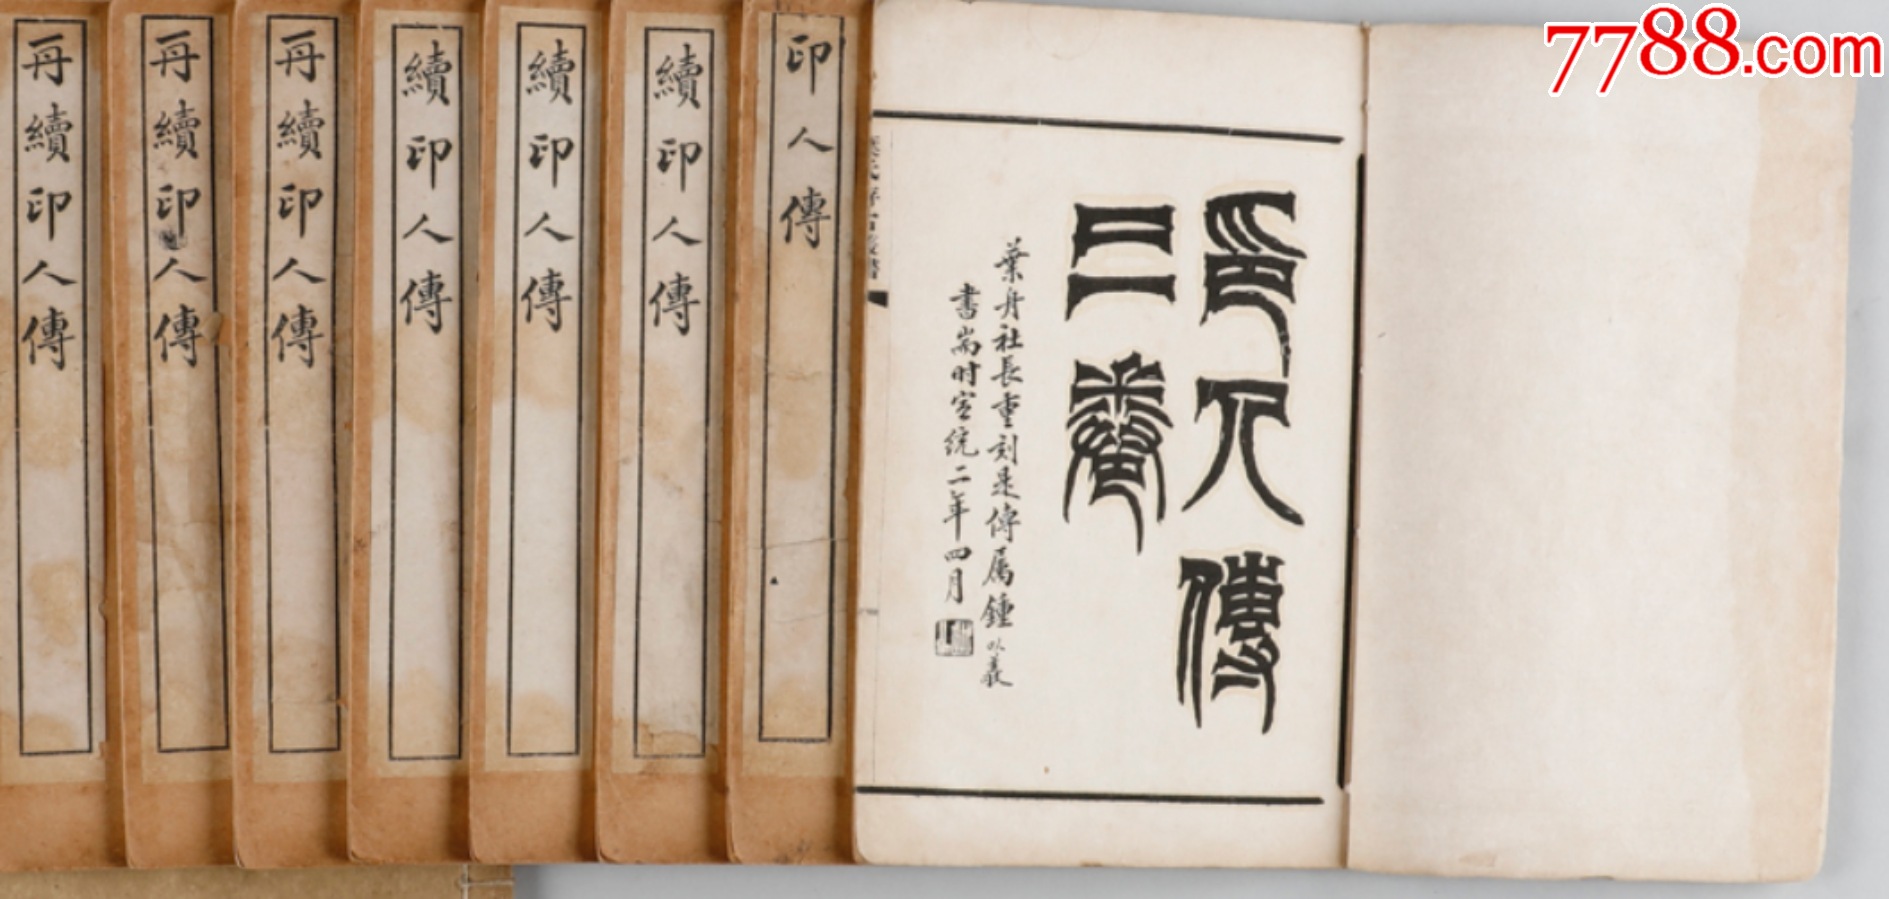 再續印人傳
再續印人傳
再續印人傳
續印人傳
續印人傳
續印人傳
印人傳
印人傳
三卷
葉舟社長重刻是傳屬鍾以敬
書耑時宣統二年四月
7788.com